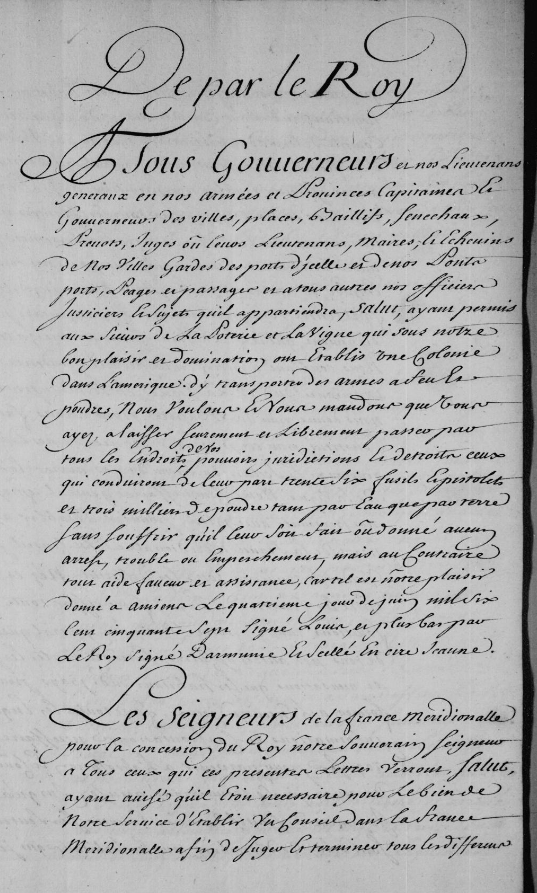 De par le Roy
A Tous Gouuerneurs et nos Lieutenans
generaux en nos armées et Prouinces Capitaines et
Gouuerneurs des villes, places, Baillifs, Senechaux,
Preuots, Juges où leurs Lieutenans, Maires, et Echeuins
de Nos Villes Gardes des ports d'jcelle et de nos Ponts
ports, Peages et passages et a tous autres nos officiers
Justiciers et Sujets qu'il appartiendra, Salut, ayant permis
aux Sieurs de La Poterie et La Vigne qui sous notre
bon plaisir et domination ont Etablis une Colonie
dans Lamerique d'y transporter des armes a feu Et
poudres, Nous Voulons Et Vous mandons que Vous
ayez a laisser seurement et Librement passer par
tous les Endroits de Vos pouuoirs juridictions Et detroits ceux
qui conduiront de leur part trente six fusils Epistolets
et trois milliers de poudre tant par Eau que par terre
sans souffrir qu'il leur soit fait où donné aucun
arrest, trouble ou Emperchement, mais au Contraire
tout aide faueur et assistance, car tel est nôtre plaisir
donné a amiens Le quatrieme jour de juin mil six
Cent cinquante Sept Signé Louis, et plus bas par
Le Roy Signé Et Scellé En cire Jeaune.
Les Seigneurs de la france Meridionalle
pour la concession du Roy nôtre Souuerain Seigneur
a Tous ceux qui ces presentes Lettres Verront, Salut,
ayant auisé qu'il Etoit necessaire pour Le bien de
Notre Seruice d'Etablir Un Conseil dans la france
Meridionalle afin de Juger Et terminer tous les differens